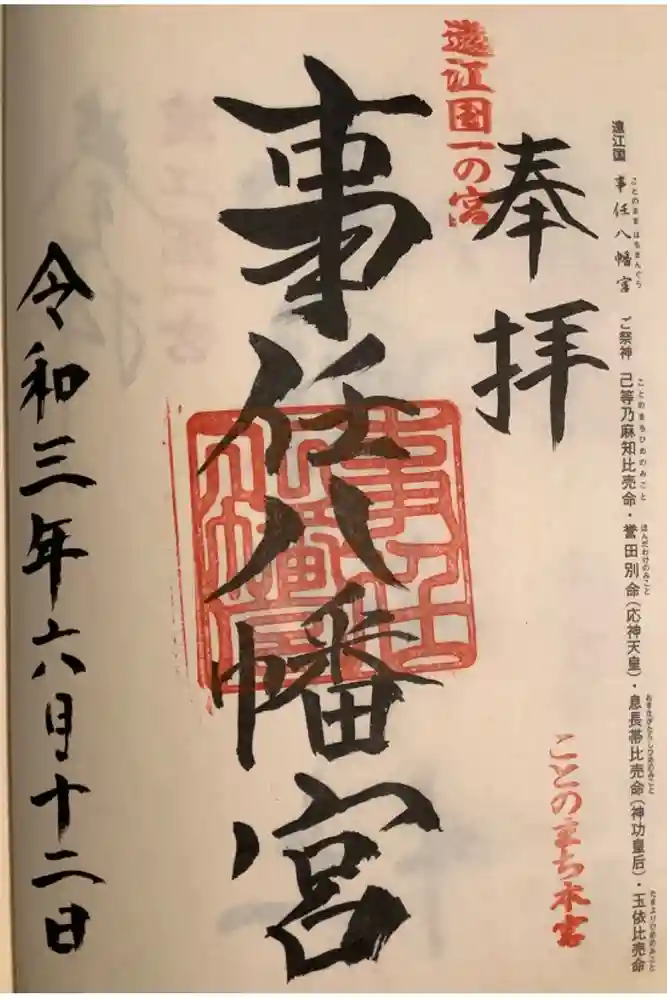 遠江国 事任八幡宮 ご祭神 己等乃麻知比売命・誉田別命(応神天皇)・息長帯比売命(神功皇后)・玉依比売命
ことのまま はちまんぐう ことのまちひめのみこと ほんだわけのみこと おきながたらしひめのみこと たまよりひめのみこと
奉拝
ことのまち本宮
遠江国一の宮
事任八幡宮
事任
八幡宮
令和三年六月十二日